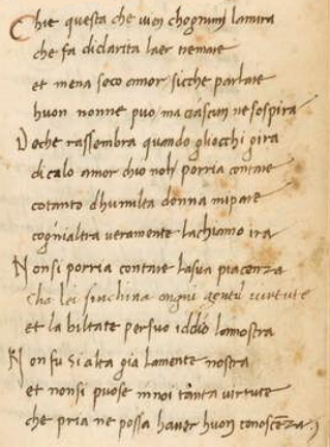 Chie questa che vien chognuni lamira
che fa diclarita laer tremare
et mena seco amor sicche parlare
huon nonne puo, ma ciascun ne sospira
Deche rassembra quando gliocchi gira
dicalo amor chio nol porria contare
cotanto dhumilta donna mipare
cognialtra veramente lachiamo ira
Nonsi porria contare lasua piacenza
cha lei sinchina ongni gentil virtute
et la biltate persuo iddio lamostra
Non fu sialta gia lamente nostra
et nonsi puose innoi tanta virtute
che pria ne possa haver huon conoscenza